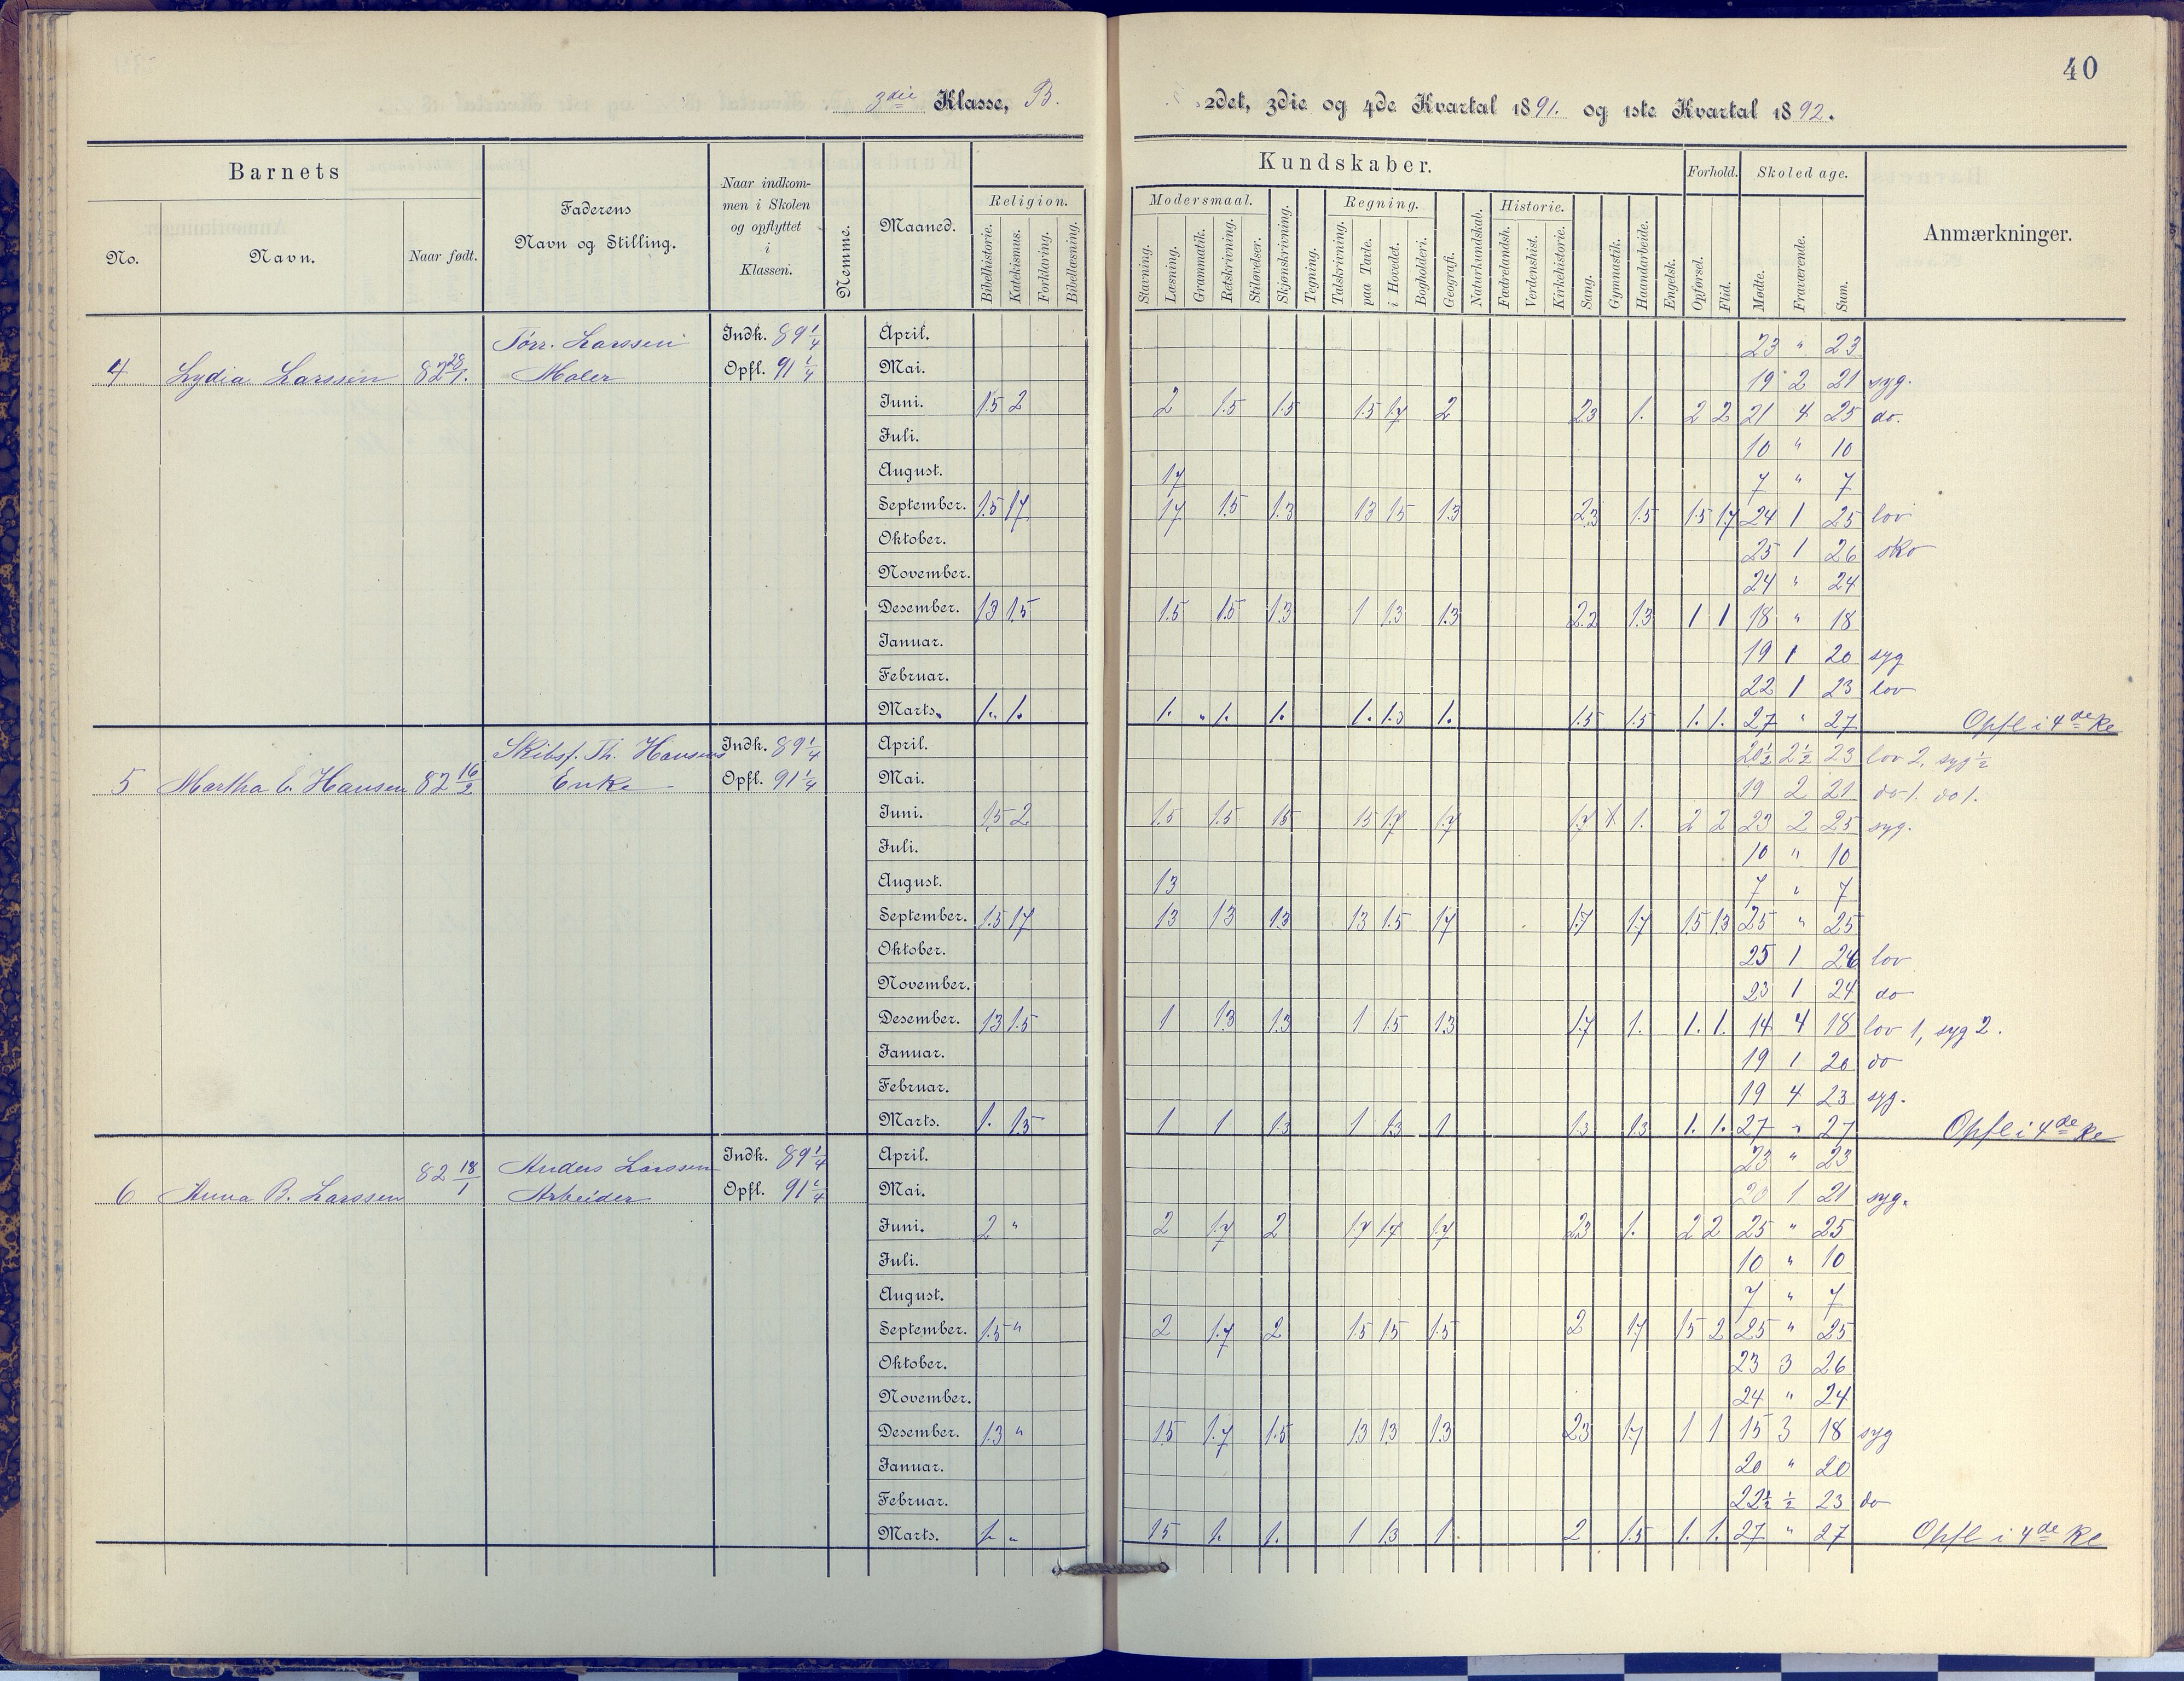 40
3die Klasse, B. 2det, 3die og 4de Kvartal 1891. og 1ste Kvartal 1892.
Barnets
No.
Navn.
Naar født.
Faderens
Navn og Stilling.
Naar indkom-
men i Skolen
og opflyttet
i
Klassen.
Nemme.
Maaned.
Kundskaber.
Religion.
Bibelhistorie.
Katekismus.
Forklaring.
Bibellæsning.
Modersmaal.
Stavning.
Læsning.
Grammatik.
Retskrivning
Stiløvelser.
Skjønskrivning.
Tegning.
Regning.
Talskrivning.
paa Tavle.
i Hovedet.
Bogholderi.
Geografi.
Naturkundskab.
Historie.
Fædrelandsh.
Verdenshist.
Kirkehistorie.
Sang.
Gymnastik.
Haandarbeide.
Engelsk.
Forhold.
Opførsel.
Flid.
Skoledage.
Mødte.
Fraværende.
Sum.
Anmærkninger.
4 Lydia Larssen
Larssen
Maler
Indk. 89 1/4
Opfl. 91 1/4
April. 23 " 23
Mai. 19 2 21 syg.
Juni. 1.5 2 2 1.5 1.5 1.5 1.7 2 2.3 1. 2 2 21 4 25 do.
Juli. 10 " 10
August. 1.7 7 " 7
September. 1.5 1.7 1.7 1.5 1.3 1.3 1.5 1.3 2.3 1.5 1.5 1.7 24 1 25 lov
Oktober. 25 1 26 sko
November. 24 " 24
Desember. 1.3 1.5 1.5 1.5 1.3 1 1.3 1.3 2.2 1.3 1 1 18 " 18
Januar. 19 1 20 syg
Februar. 22 1 23 lov
Marts. 1. 1. 1. " 1. 1. 1. 1.3 1. 1.5 1.5 1. 1. 27 " 27 Opfl i 4de Kl
5 Martha E. Hansen 82 16/2
Skibsf. Th. Hansens
Enke
Indk. 89 1/4
Opfl. 91 1/4
April. 20 1/2 2 1/2 23 lov 2, syg 1/2
Mai. 19 2 21 do 1. do 1.
Juni. 1.5 2 1.5 1.5 1.5 1.5 1.7 1.7 1.7 1. 2 2 23 2 25 syg.
Juli. 10 " 10
August. 1.3 7 " 7
September. 1.5 1.7 1.3 1.3 1.3 1.3 1.5 1.7 1.7 1.7 1.5 1.3 25 " 25
Oktober. 25 1 26 lov
November. 23 1 24 do
Desember. 1.3 1.5 1 1.3 1.3 1 1.5 1.3 1.7 1. 1. 1. 14 4 18 lov 1, syg 2.
Januar. 19 1 20 do
Februar. 19 4 23 syg.
Marts. 1. 1.3 1 1 1.3 1 1.3 1 1.3 1.3 1. 1. 27 " 27 Opfl i 4de Kl
6 Anna B. Larssen 82 18/1
Anders Larssen
Arbeider
Indk. 89 1/4
Opfl. 91 1/4
April. 23 " 23
Mai. 20 1 21 syg.
Juni. 2 " 2 1.7 2 1.7 1.7 1.7 2.3 1. 2 2 25 " 25
Juli. 10 " 10
August. 7 " 7
September. 1.5 " 2 1.7 2 1.5 1.5 1.5 2 1.7 1.5 2 25 " 25
Oktober. 23 3 26
November. 24 " 24
Desember. 1.3 " 1.5 1.7 1.5 1.3 1.3 1.3 2.3 1.7 1 1 15 3 18 syg
Januar. 20 " 20
Februar. 22 1/2 1/2 23 do
Marts. 1. " 1.5 1. 1. 1 1.3 1. 2 1.5 1. 1. 27 " 27 Opfl i 4de Kl